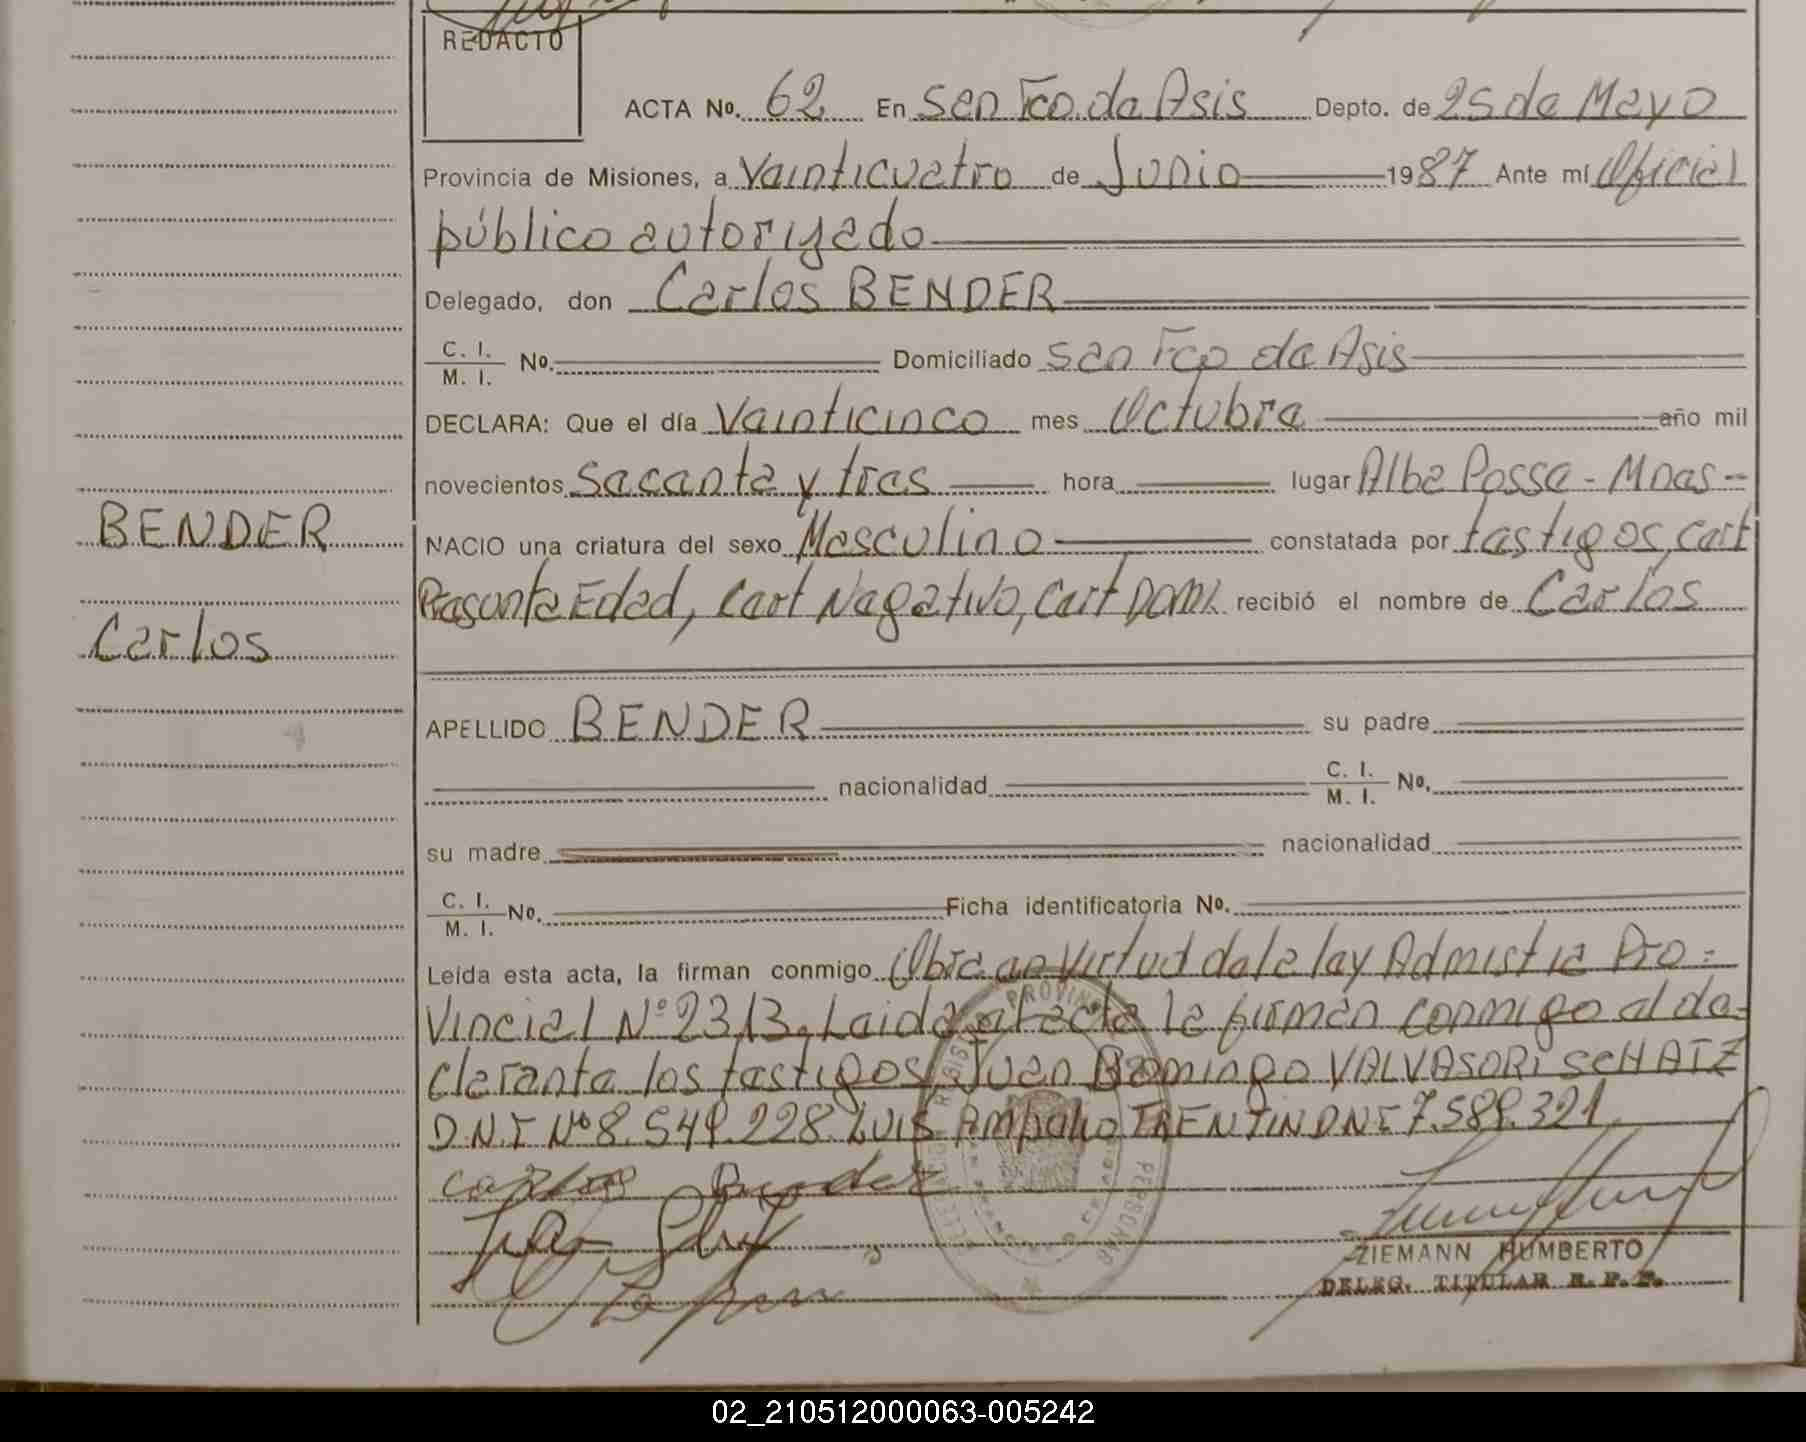 REDACTO
ACTA No. 62 En San Fco. de Asis Depto. de 25 de Mayo
Provincia de Misiones, a Veinticuatro de Junio 1987 Ante mí Oficial
público autorizado
Delegado, don Carlos BENDER
C. I.
M. I. No. Domiciliado San Fco de Asis
DECLARA: Que el día Veinticinco mes Octubre año mil
novecientos Sesenta y tres hora lugar Alba Posse - Mnes -
BENDER
NACIO una criatura del sexo Masculino constatada por testigos, cert
Presunta Edad, Cert Negativo, Cert Domi. recibió el nombre de Carlos
Carlos
APELLIDO BENDER su padre
nacionalidad C. I.
M. I. No.
su madre nacionalidad
C. I.
M. I. No. Ficha identificatoria No.
Leída esta acta, la firman conmigo Obra en Virtud de la ley Admistia Pro-
Vincial Nº 2313. Leida el acta la firman conmigo el de-
clarante los testigos Juan Domingo VALVASORI SCHATZ
D.N.I Nº 8.549.228. LUIS TRENTIN DNI 7.589.321
Carlos Bender
ZIEMANN HUMBERTO
DELEG. TITULAR R. P. P.
02_210512000063-005242